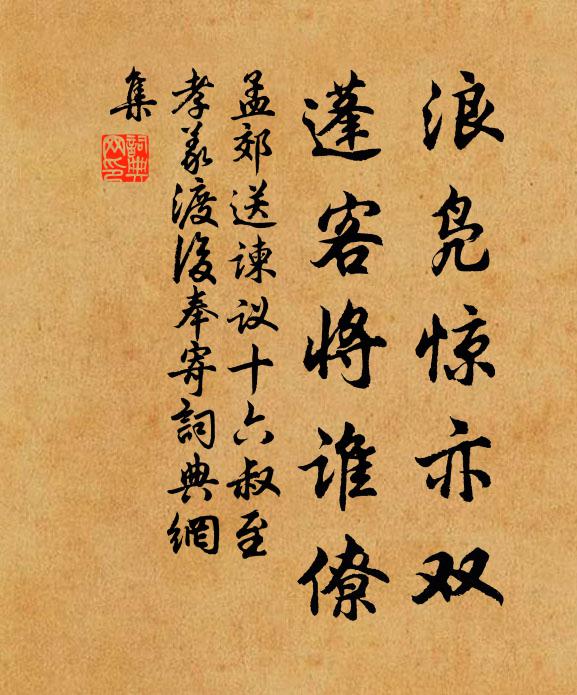 浪凫惊亦双
蓬客将谁僚
孟郊送谏议十六叔至
孝义渡后奉寄詞典網
集
詞典
网印